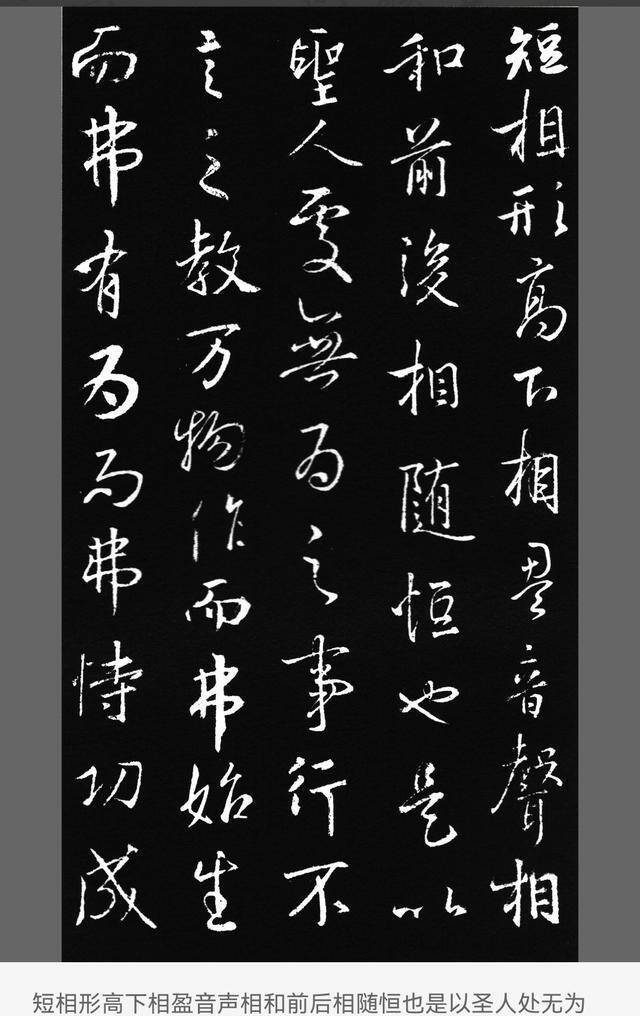 短相形高下相盈音聲相
和前後相随恒也是以
聖人処無为之事行不
言之教万物作而弗始生
而弗有为而弗恃功成
短相形高下相盈音声相和前后相随恒也是以圣人处无为